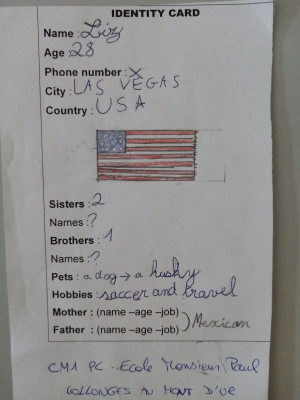 IDENTITY CARD
Name : Liz
Age : 28
Phone number : X
City : LAS VEGAS
Country : USA
Sisters : 2
Names : ?
Brothers : 1
Names : ?
Pets : a dog → a husky
Hobbies : soccer and travel
Mother : (name –age –job)
Father : (name –age –job) ) Mexican
CM1 PC - Ecole Monsieur Paul
COLLONGES AU MONT D'OR